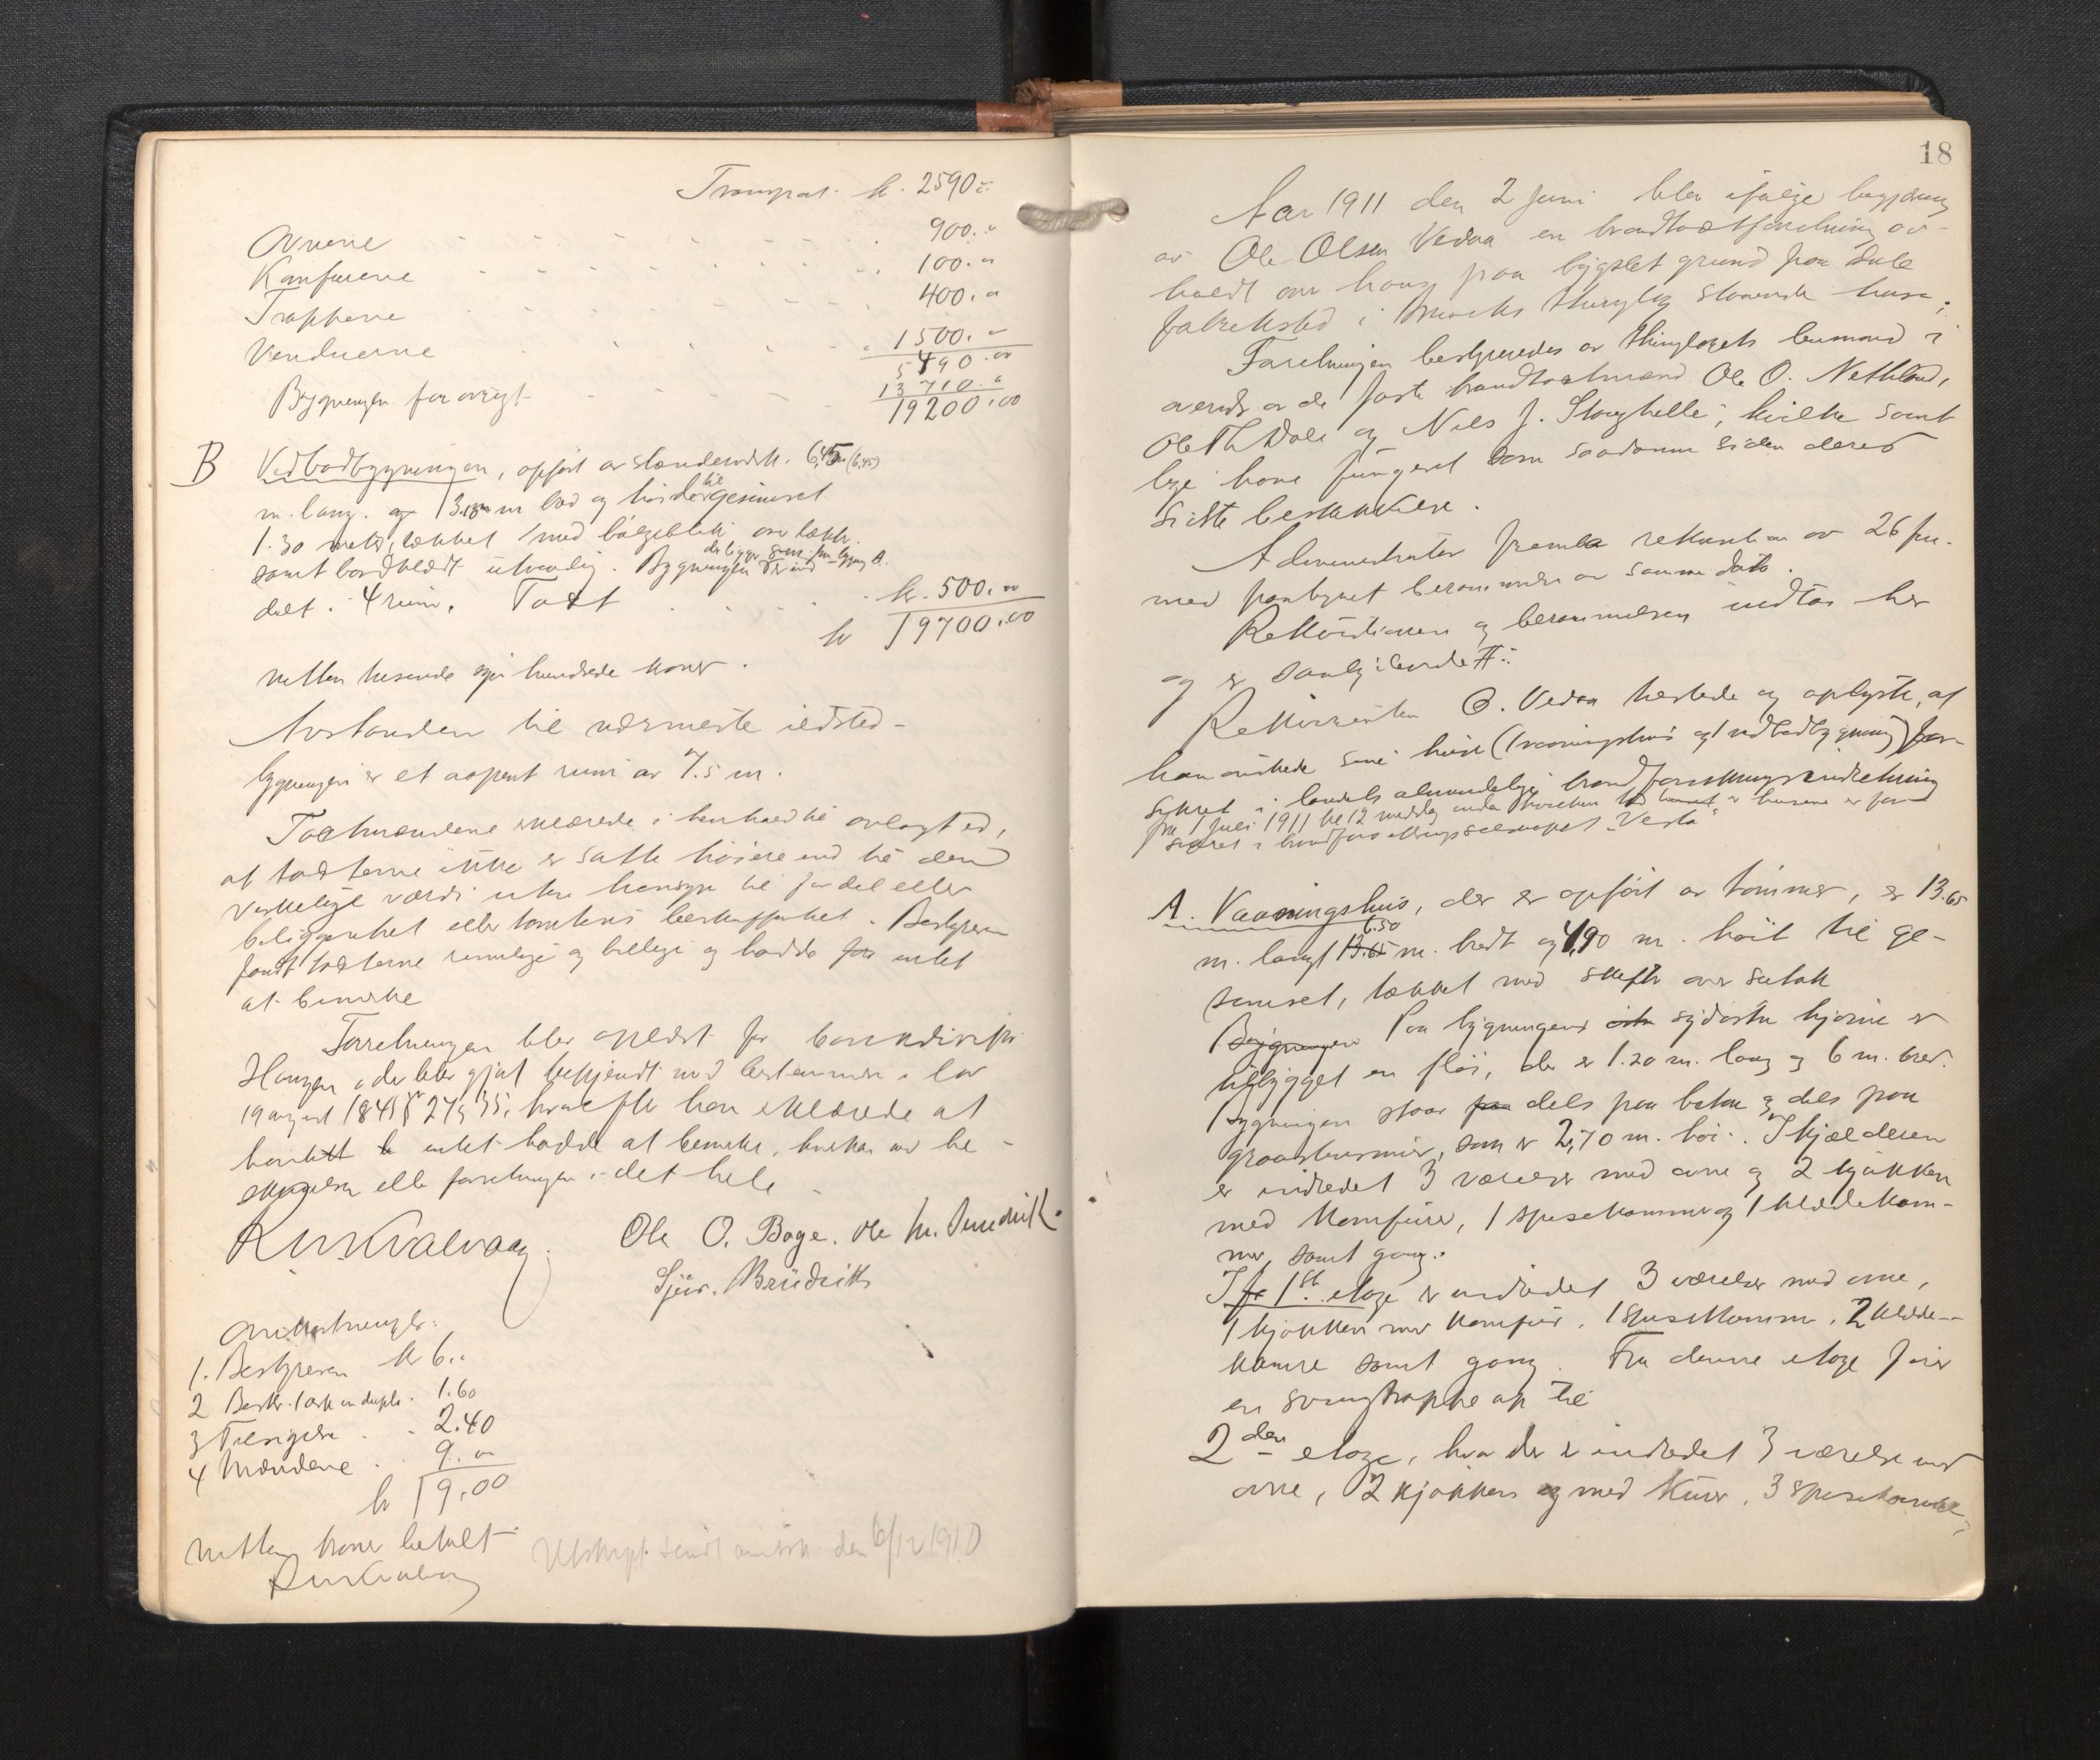 Transport kr. 2590.-
Ovnene 900.-
Komfurene 100.-
Trappene 400.-
Vinduerne 1500.-
5490.00
Bygningen forøvrigt 13710.-
19200.00
B Vedbodbygningen, opført av stenderverk. 6,45 m (6.45)
m. lang. og 3.10 m bred og høide til gesimset
1.30 meter, tækket med bølgeblik over tækk.
der ligger bygn. A.
samt bordklædt utvendig. Bygningen er ind-
delt i 4 rum. Takst kr. 500.00
kr 19700.00
nitten tusende syv hundrede kroner.
Avstanden til nærmeste ildsted-
bygningen er et aapent rum av 7.5 m.
Takstmændene erklærede i henhold til avlagt ed,
at taksterne ikke er satte høiere end til den
virkelige værdi uten hensyn til fordel eller
beliggenhet eller tomtens beskaffenhet. Bestyreren
fandt taksterne rimelige og billige og hadde intet
at bemerke
Forretningen blev oplæst for
Hanzen, der blev gjort bekjendt med bestemmelsen i lov
19 august 1845 § 27, 35, hvorefter han erklærede at
intet hadde at bemerke, hverken ved be-
skrivelsen eller forretningen i det hele.
Ole O. Boge. Ole M.
Sjur. Brüdvik
Omkostninger:
1. Bestyreren kr 6.-
2 Beskr. 1 ark in duplo. 1.60
3 Tilsigelse 2.40
4 Mændene 9.00
kr 19.00
nitten kroner betalt
Utskrift sendt den 6/12 1910
18
Aar 1911 den 2 juni blev ifølge begjæring
av Ole Olsen Vedaa en brandtakstforretning av-
holdt over hans paa bygslet grund paa Dale
fabriksted i Bruviks thinglag staaende huse.
Forretningen bestyredes av thinglagets lensmand i
overvær av de faste brandtakstmænd Ole O. Nethland,
Ole Th Dale og Nils J. Stanghelle, hvilke samt-
lige have fungeret som saadanne siden deres
sidste beskikkelse.
Administrator fremla rekvisition av 26 f.m.
med paategnet berammelse av samme dato.
Rekvisitionen og berammelsen indtas her
og er saalydende #:
Rekvirenten O. Vedaa tilstede og oplyste, at
han ønskede sine huse (1 vaaningshus og 1 vedbodbygning) for-
sikret i landets almindelige brandforsikringsindretning
fra 1 Juli 1911 kl 12 middag, inden hvilken tid husene er for-
sikret i brandforsikringsselskapet "Vesta"
A. Vaaningshus, der er opført av tømmer, er 13.65
6.50
m. langt 13.65 m. bredt og 4,90 m. høit til ge-
simset, tækket med skifer over sutak
Bygningen Paa bygningens sydøstre hjørne er
tilbygget en fløi, der er 1.20 m. lang og 6 m. bred.
Bygningen staar paa dels paa beton og dels paa
graastensmur, som er 2,70 m. høi. I kjælderen
er indredet 3 værelser med ovne og 2 kjøkken
med komfurer, 1 spisekammer og 1 klædekam-
mer, samt gang.
I 1ste etage er indredet 3 værelser med ovne,
1 kjøkken med komfur, 1 spisekammer, 2 klæde-
kamre samt gang. Fra denne etage fører
en svingtrappe op til
2den etage, hvor der er indredet 3 værelser med
ovne, 2 kjøkken og med kfur, 3 spisekamre,